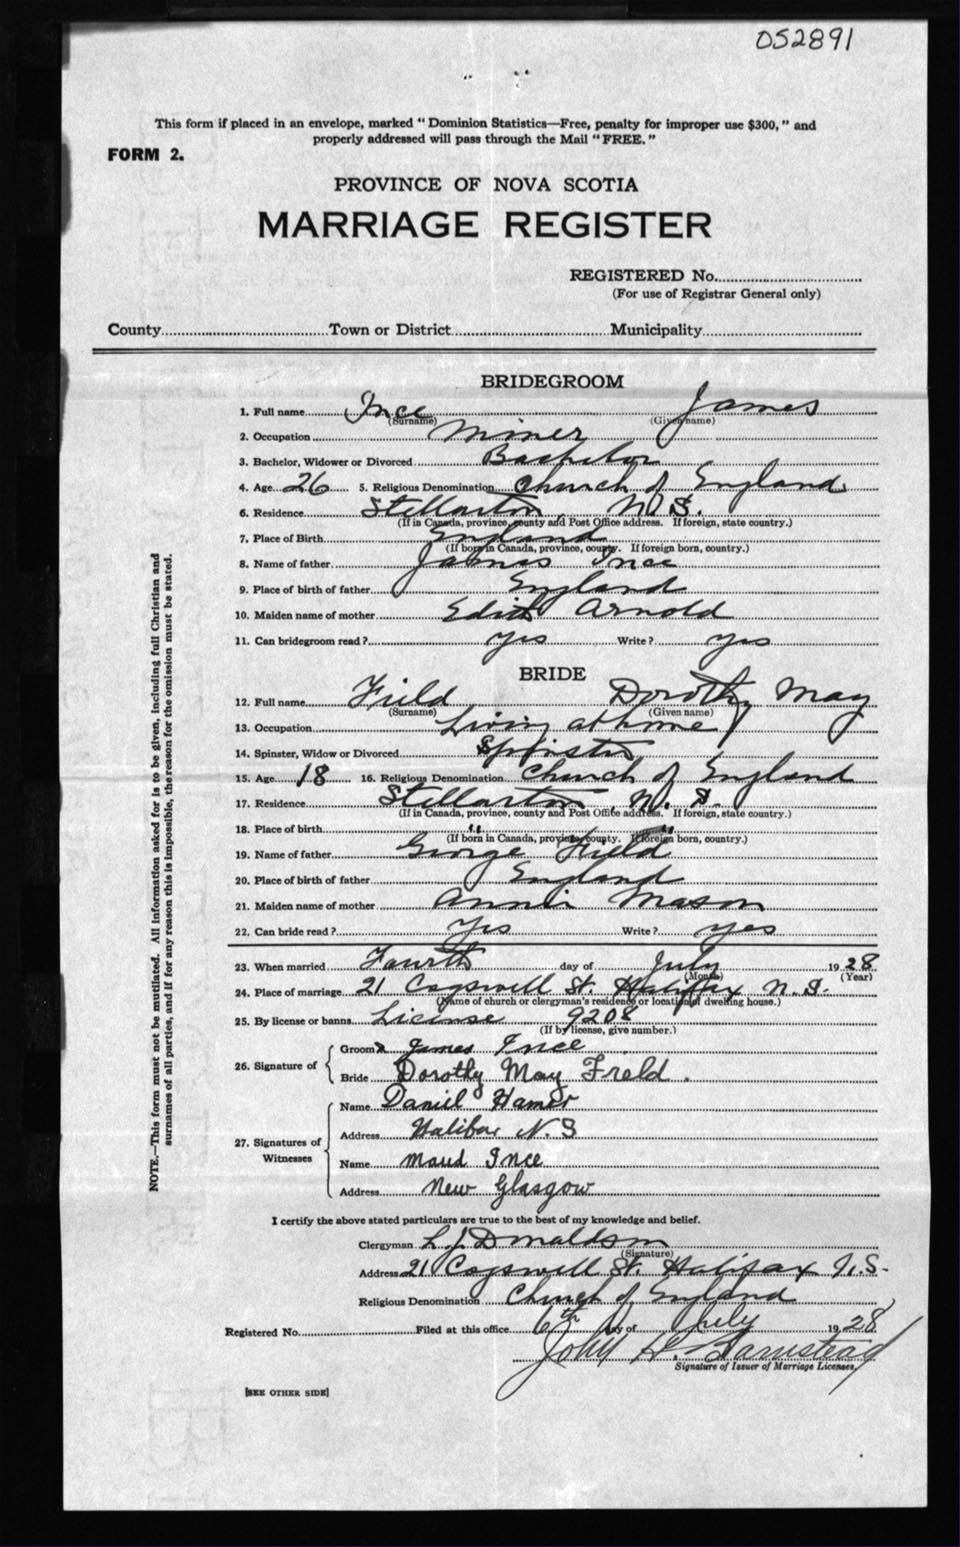 052891
This form if placed in an envelope, marked "Dominion Statistics—Free, penalty for improper use $300," and
properly addressed will pass through the Mail "FREE."
FORM 2.
PROVINCE OF NOVA SCOTIA
MARRIAGE REGISTER
REGISTERED No.
(For use of Registrar General only)
County Town or District Municipality
BRIDEGROOM
1. Full name Ince James
(Surname) (Given name)
2. Occupation Miner
3. Bachelor, Widower or Divorced Bachelor
4. Age 26 5. Religious Denomination Church of England
6. Residence Stellarton, N.S.
(If in Canada, province, county and Post Office address. If foreign, state country.)
7. Place of Birth England
(If born in Canada, province, county. If foreign born, country.)
8. Name of father James Ince
9. Place of birth of father England
10. Maiden name of mother Edith Arnold
11. Can bridegroom read? yes Write? yes
BRIDE
12. Full name Field Dorothy May
(Surname) (Given name)
13. Occupation Living at home
14. Spinster, Widow or Divorced Spinster
15. Age 18 16. Religious Denomination Church of England
17. Residence Stellarton, N.S.
(If in Canada, province, county and Post Office address. If foreign, state country.)
18. Place of birth " "
(If born in Canada, province, county. If foreign born, country.)
19. Name of father George Field
20. Place of birth of father England
21. Maiden name of mother Annie Mason
22. Can bride read? Yes Write? yes
23. When married Fourth day of July 1928
(Month) (Year)
24. Place of marriage 21 Cogswell St. Halifax N.S.
(Name of church or clergyman's residence or location of dwelling house.)
25. By license or banns License 9208
(If by license, give number.)
26. Signature of Groom x James Ince
Bride Dorothy May Freld.
27. Signatures of Witnesses Name Daniel Hamer
Address Halifax N.S
Name Maud Ince
Address New Glasgow
I certify the above stated particulars are true to the best of my knowledge and belief.
Clergyman L. J. Donaldson
(Signature)
Address 21 Cogswell St. Halifax N.S.
Religious Denomination Church of England
Registered No. Filed at this office 6th day of July 1928
John H. Barnstead
Signature of Issuer of Marriage Licenses
[SEE OTHER SIDE]
NOTE.—This form must not be mutilated. All information asked for is to be given, including full Christian and
surnames of all parties, and if for any reason this is impossible, the reason for the omission must be stated.